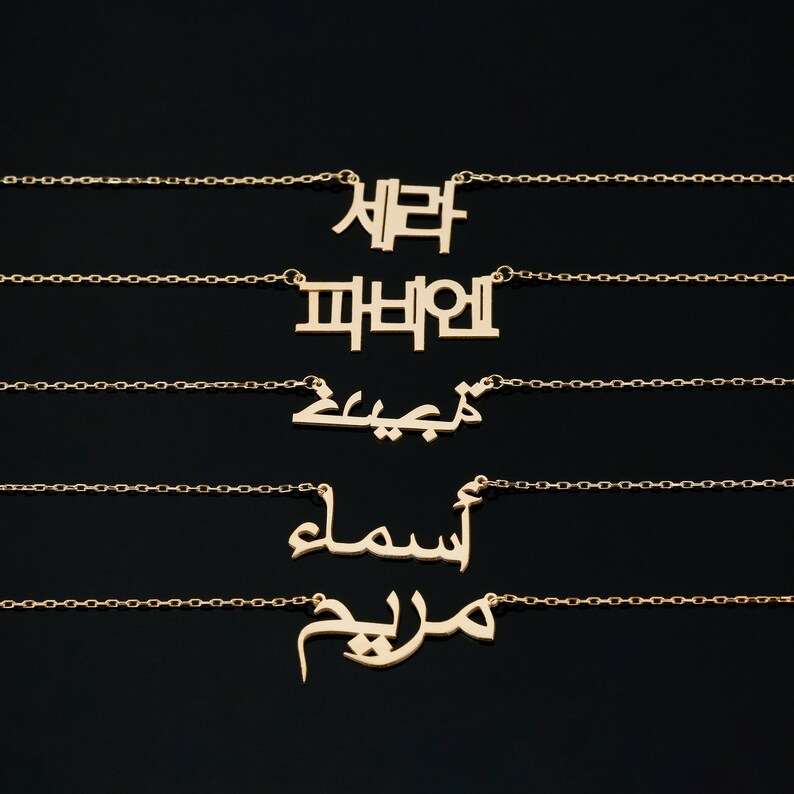 세라
파비엔
أسماء
مريم